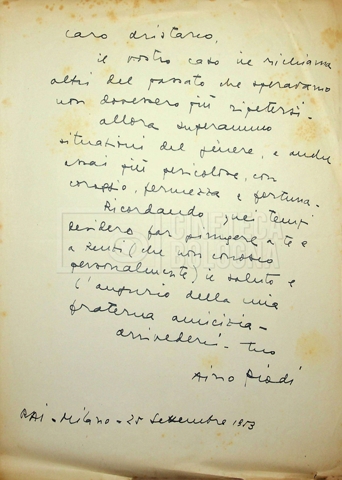 caro Aristarco,
il vostro caso ne richiama
altri del passato che speravamo
non dovessero più ripetersi.
allora superammo
situazioni del genere, e anche
assai più pericolose, con
coraggio, fermezza e fortuna.
Ricordando quei tempi
desidero far giungere a te e
a Renzi (che non conosco
personalmente) il saluto e
l'augurio della mia
fraterna amicizia -
arrivederci - tuo
RAI - Milano - 25 Settembre 1953
CINETECA
BOLOGNA